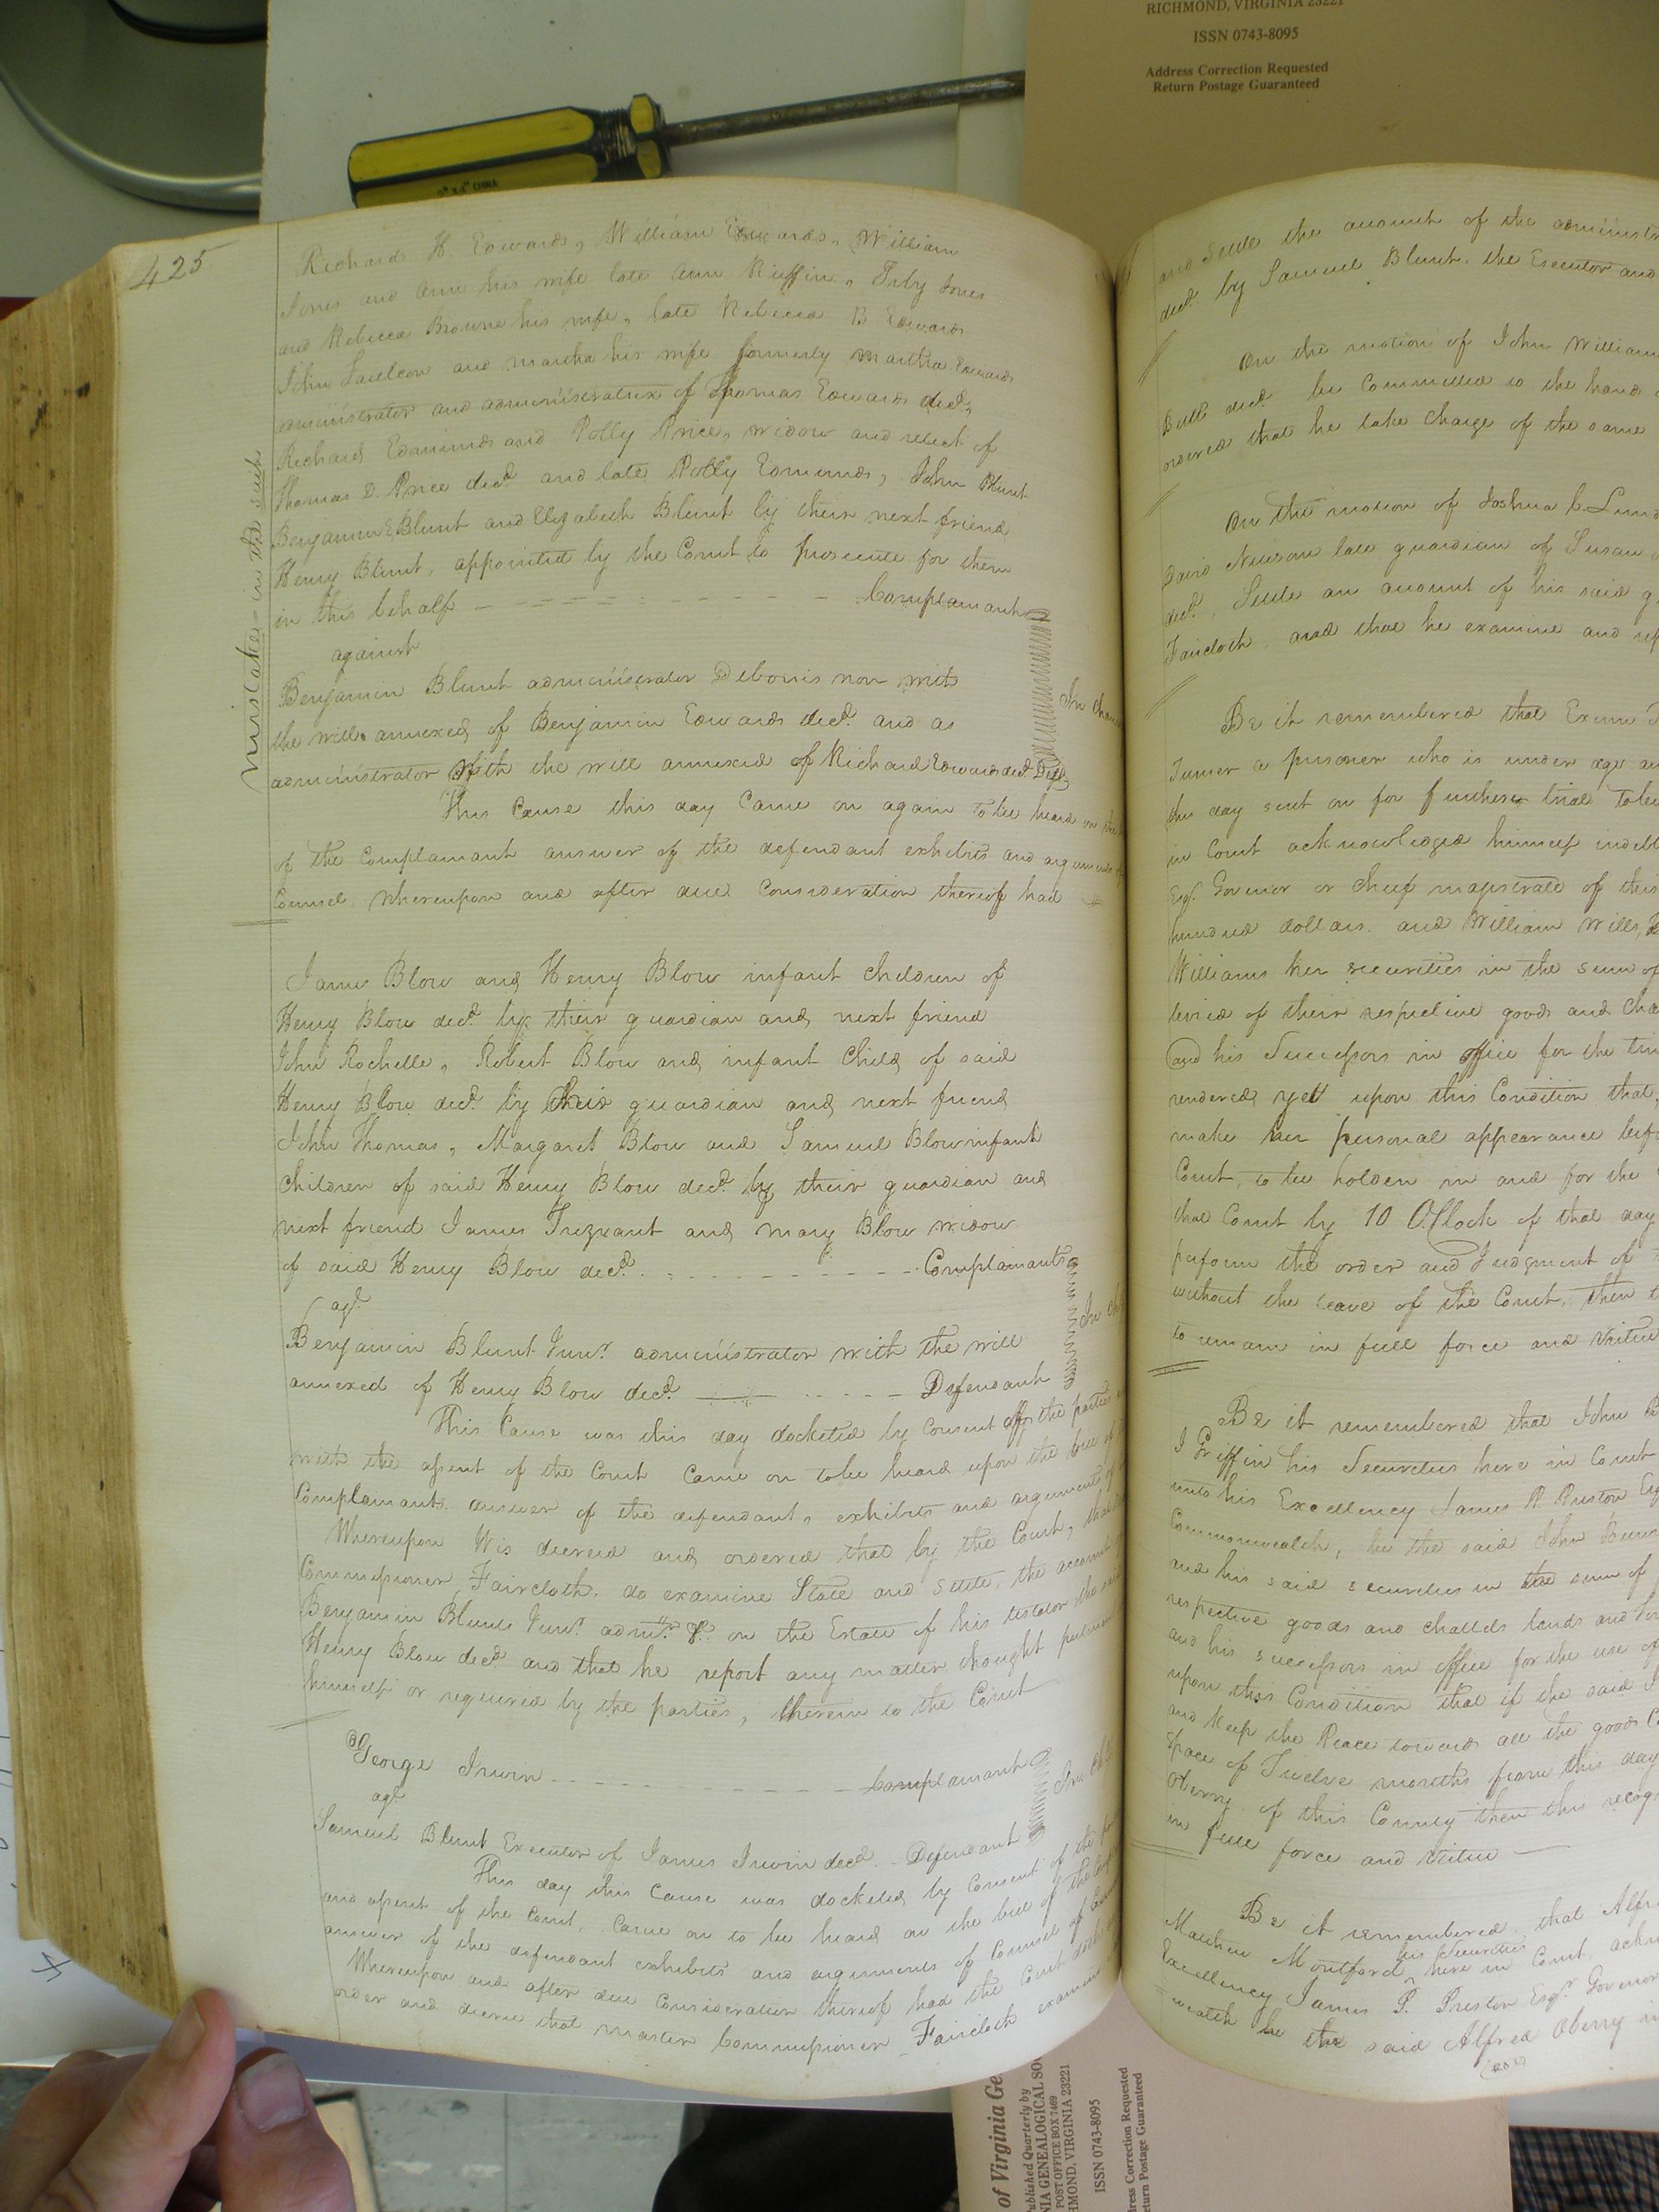 RICHMOND, VIRGINIA 23221
ISSN 0743-8095
Address Correction Requested
Return Postage Guaranteed
2" x 4" CHINA
425
Richard H. Edwards, William Edwards, William
Jones and Ann his wife late Ann Ruffin, Jones
and Rebecca Browne his wife, late Rebecca B Edwards
John and Martha his wife formerly Martha Edwards
administrator and administratrix of Thomas Edwards decd,
Richard Edmunds and Polly Price, widow and relict of
Thomas D. Price decd and late Polly Edmunds, John Blunt
Benjamin E Blunt and Elizabeth Blunt by their next friend
Henry Blunt, appointed by the Court to prosecute for them
in this behalf Complainants
against
Benjamin Blunt administrator Debonis non with
the will annexed of Benjamin Edwards decd. and as
administrator with the will annexed of Richard Edwards decd. Deft
mistake - in the suit
In chan
This Cause this day Came on again to be heard on the
of the Complainant answer of the defendant exhibits and arguments of
Counsel, whereupon and after due Consideration thereof had
James Blow and Henry Blow infant children of
Henry Blow decd. by their guardian and next friend
John Rochelle, Robert Blow and infant Child of said
Henry Blow decd. by their guardian and next friend
John Thomas, Margaret Blow and Samuel Blow infant
children of said Henry Blow decd. by their guardian and
next friend James Trezvant and Mary Blow widow
of said Henry Blow decd. Complainants
agt.
In ch
Benjamin Blunt Junr. administrator with the will
annexed of Henry Blow decd. Defendant
This Cause was this day docketed by Consent of the parties
with the assent of the Court Came on to be heard upon the bill of
Complainants. answer of the defendant, exhibits and arguments of
Whereupon it is decreed and ordered that by the Court, that
Commissioner Faircloth, do examine State and settle, the account
Benjamin Blunt Junr. admr. &c. on the Estate of his testator the said
Henry Blow decd and that he report any matter thought
himself or required by the parties, therein to the Court
George Irwin Complainant
agt.
Samuel Blunt Executor of James Irwin decd. Defendant
This day this Cause was docketed by Consent of the
and assent of the Court, Came on to be heard on the bill of the
answer of the defendant exhibits and arguments of Counsel
Whereupon and after due Consideration thereof had the Court doth
order and decree that master Commissioner Faircloth examine
and Settle the account of the administ
decd. by Samuel Blunt, the Executor and
On the motion of John William
decd. be Committed to the hands
ordered that he take Charge of the same
On the motion of Joshua
David late guardian of Susan
decd, Settle an account of his said g
Faircloth and that he examine and
Be it remembered that Exum
Turner a prisoner who is under age
this day sent on for further trial
in Court acknowledged himself indebt
Esqr. Governor or Chief magistrate of this
hundred dollars. and William Wills,
Williams her securities in the sum of
levied of their respective goods and Cha
and his Successors in office for the
rendered, yet upon this Condition that,
make her personal appearance bef
Court, to be holden in and for the
that Court by 10 OClock of that day
perform the order and Judgment of
without the leave of the Court, then
to remain in full force and Virtue
Be it remembered that John
I Griffin his Securities here in Court
unto his Excellency James P Preston Esq
Commonwealth, he the said John
and his said securities in the sum of
respective goods and chattels lands and
and his successors in office for the use of
upon this Condition that if the said
and keep the Peace towards all the good
space of Twelve months from this day
Oberry of this County then this recog
in full force and Virtue
Be it remembered, that Alfre
his Securities
Matthew Montford, here in Court, ackn
Excellency James P. Preston Esqr. Governor
wealth he the said Alfred Oberry
of Virginia Ge
Published Quarterly by
NIA GENEALOGICAL SOC
POST OFFICE BOX 7469
HMOND, VIRGINIA 23221
ISSN 0743-8095
dress Correction Requested
eturn Postage Guaranteed